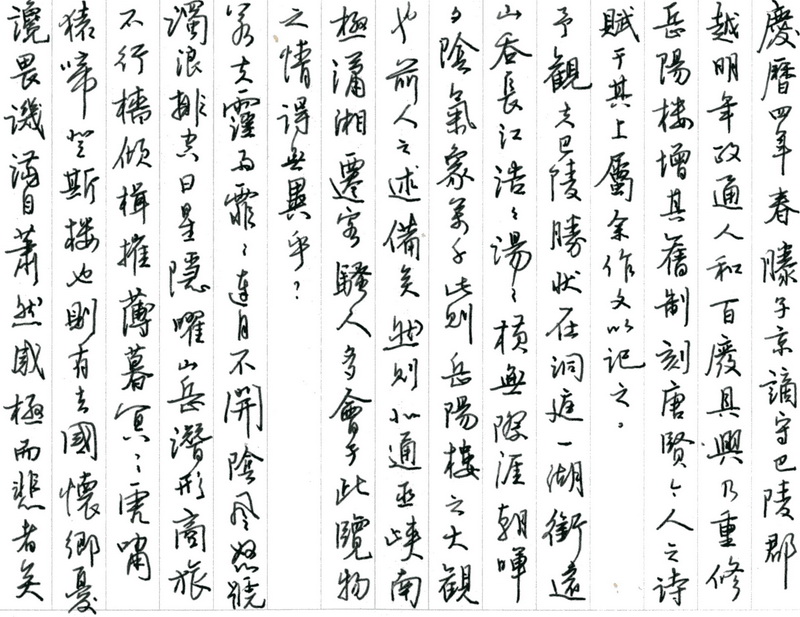 慶曆四年春滕子京謫守巴陵郡
越明年政通人和百廢具興乃重修
岳陽樓增其舊制刻唐賢今人之詩
賦于其上屬余作文以記之。
予觀夫巴陵勝狀在洞庭一湖銜遠
山吞長江浩〻湯〻橫無際涯朝暉
夕陰氣象萬千此則岳陽樓之大觀
也前人之述備矣然則北通巫峽南
極瀟湘遷客騷人多會于此覽物
之情得無異乎？
若夫霪雨霏〻連月不開陰風怒號
濁浪排空日星隱曜山岳潛形商旅
不行檣傾楫摧薄暮冥〻虎嘯
猿啼登斯樓也則有去國懷鄉憂
讒畏譏滿目蕭然感極而悲者矣